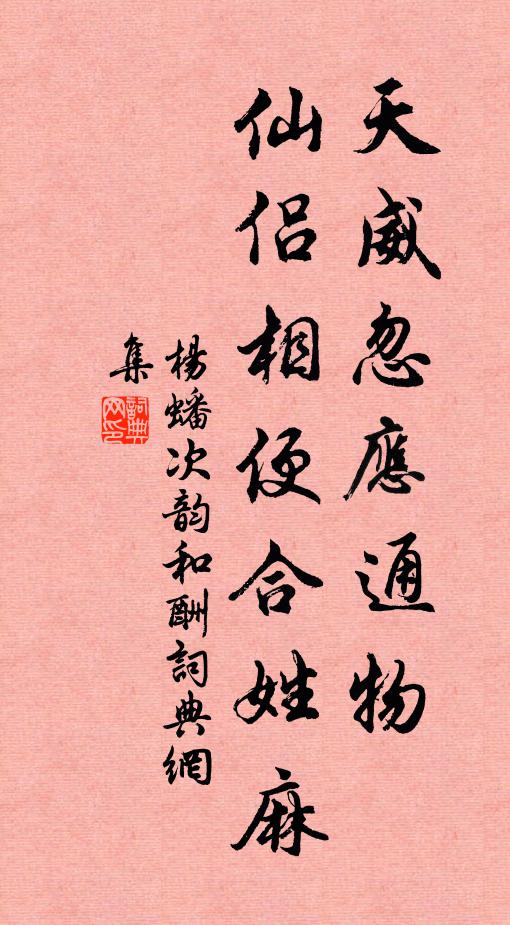 天威忽應通物
仙侣相便合姓麻
楊蟠次韵和酬詞典網
集
詞典
网印